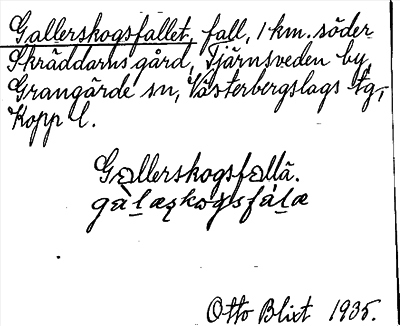 Gallerskogsfallet, fall, 1 km. söder
Skräddarns gård, Tjärnsveden by,
Grangärde sn, Västerbergslags tg,
Kopp l.
Gallerskogsfallä.
Otto Blixt 1935.